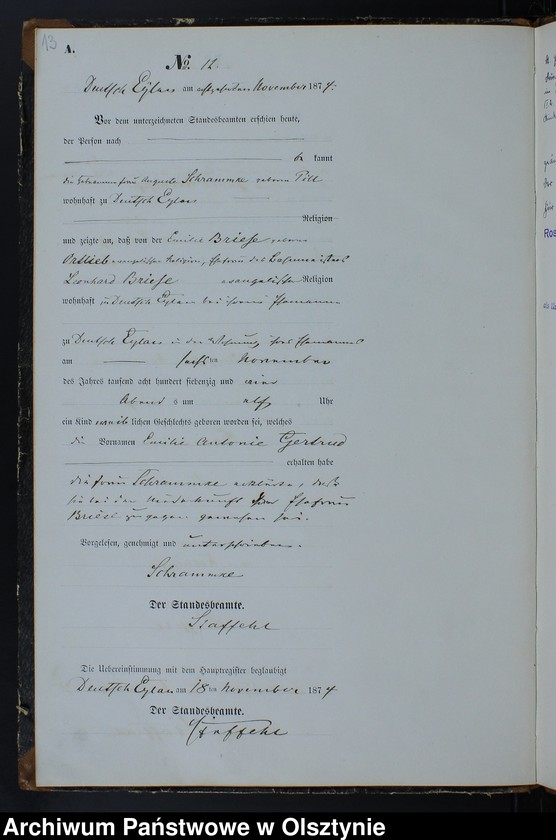 13
A.
No. 12
Deutsch Eylau am achtzehnten November 1874.
Vor dem unterzeichneten Standesbeamten erschien heute,
der Person nach
be kannt
die Hebamme frau Auguste Schrammke geborne Till
wohnhaft zu Deutsch Eylau
Religion
und zeigte an, daß von der Emilie Briese geborne
Ortlieb evangelischer Religion, Ehefrau des
Leonhard Briese evangelischer Religion
wohnhaft zu Deutsch Eylau bei ihrem Ehemanne
zu Deutsch Eylau in der Wohnung ihres Ehemannes
am November
des Jahres tausend acht hundert siebenzig und vier
Abend s um elf Uhr
ein Kind weib lichen Geschlechts geboren worden sei, welches
die Vornamen Emilie Antonie Gertrud
erhalten habe
die frau Schrammke erklärte, daß
sie bei der Niederkunft der Ehefrau
Briese zugegen gewesen sei.
Vorgelesen, genehmigt und unterschrieben.
Schrammke
Der Standesbeamte.
Staffehl
Die Uebereinstimmung mit dem Hauptregister beglaubigt
Deutsch Eylau am 18 ten November 1874
Der Standesbeamte.
Staffehl
Archiwum Państwowe w Olsztynie